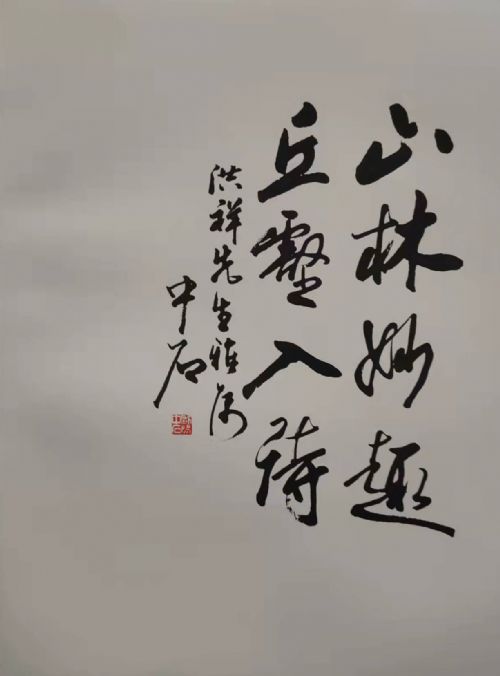 山林妙趣
丘壑入诗
洪祥先生雅属
中石